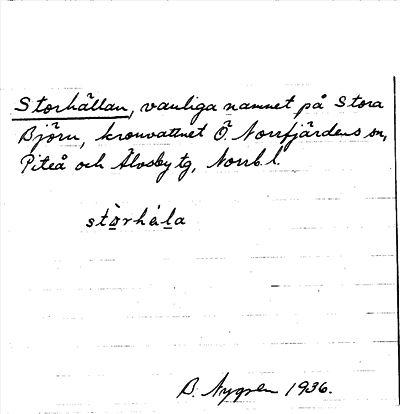 Storhällan, vanliga namnet på Stora
Björn, kronvattnet Ö Norrfjärdens sn,
Piteå och Älvsby tg, Norrb. l.
stòrhála
B. Nygren 1936.